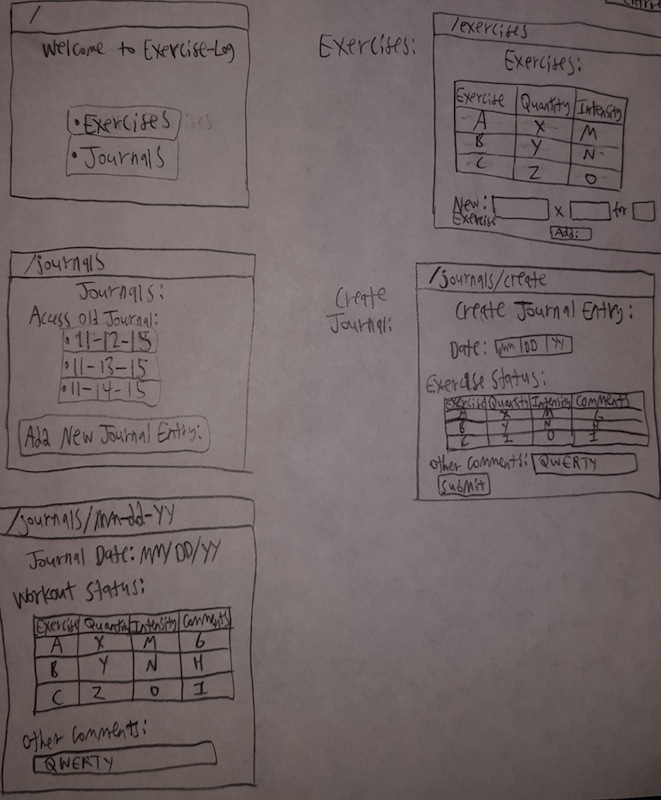 /
Welcome to Exercise-Log
• Exercises
• Journals
Exercises:
/exercises
Exercises:
Exercise Quantity Intensity
A X M
B Y N
C Z O
New: x for
Exercise
Add:
/journals
Journals:
Access Old Journal:
• 11-12-15
• 11-13-15
• 11-14-15
Add New Journal Entry:
Create
Journal:
/journals/create
Create Journal Entry:
Date: mm DD YY
Exercise Status:
Exercise Quantity Intensity Comments
A X M G
B Y N H
C Z O I
Other Comments: QWERTY
Submit
/journals/mm-dd-YY
Journal Date: MM/DD/YY
Workout Status:
Exercise Quantity Intensity Comments
A X M G
B Y N H
C Z O I
Other Comments:
QWERTY